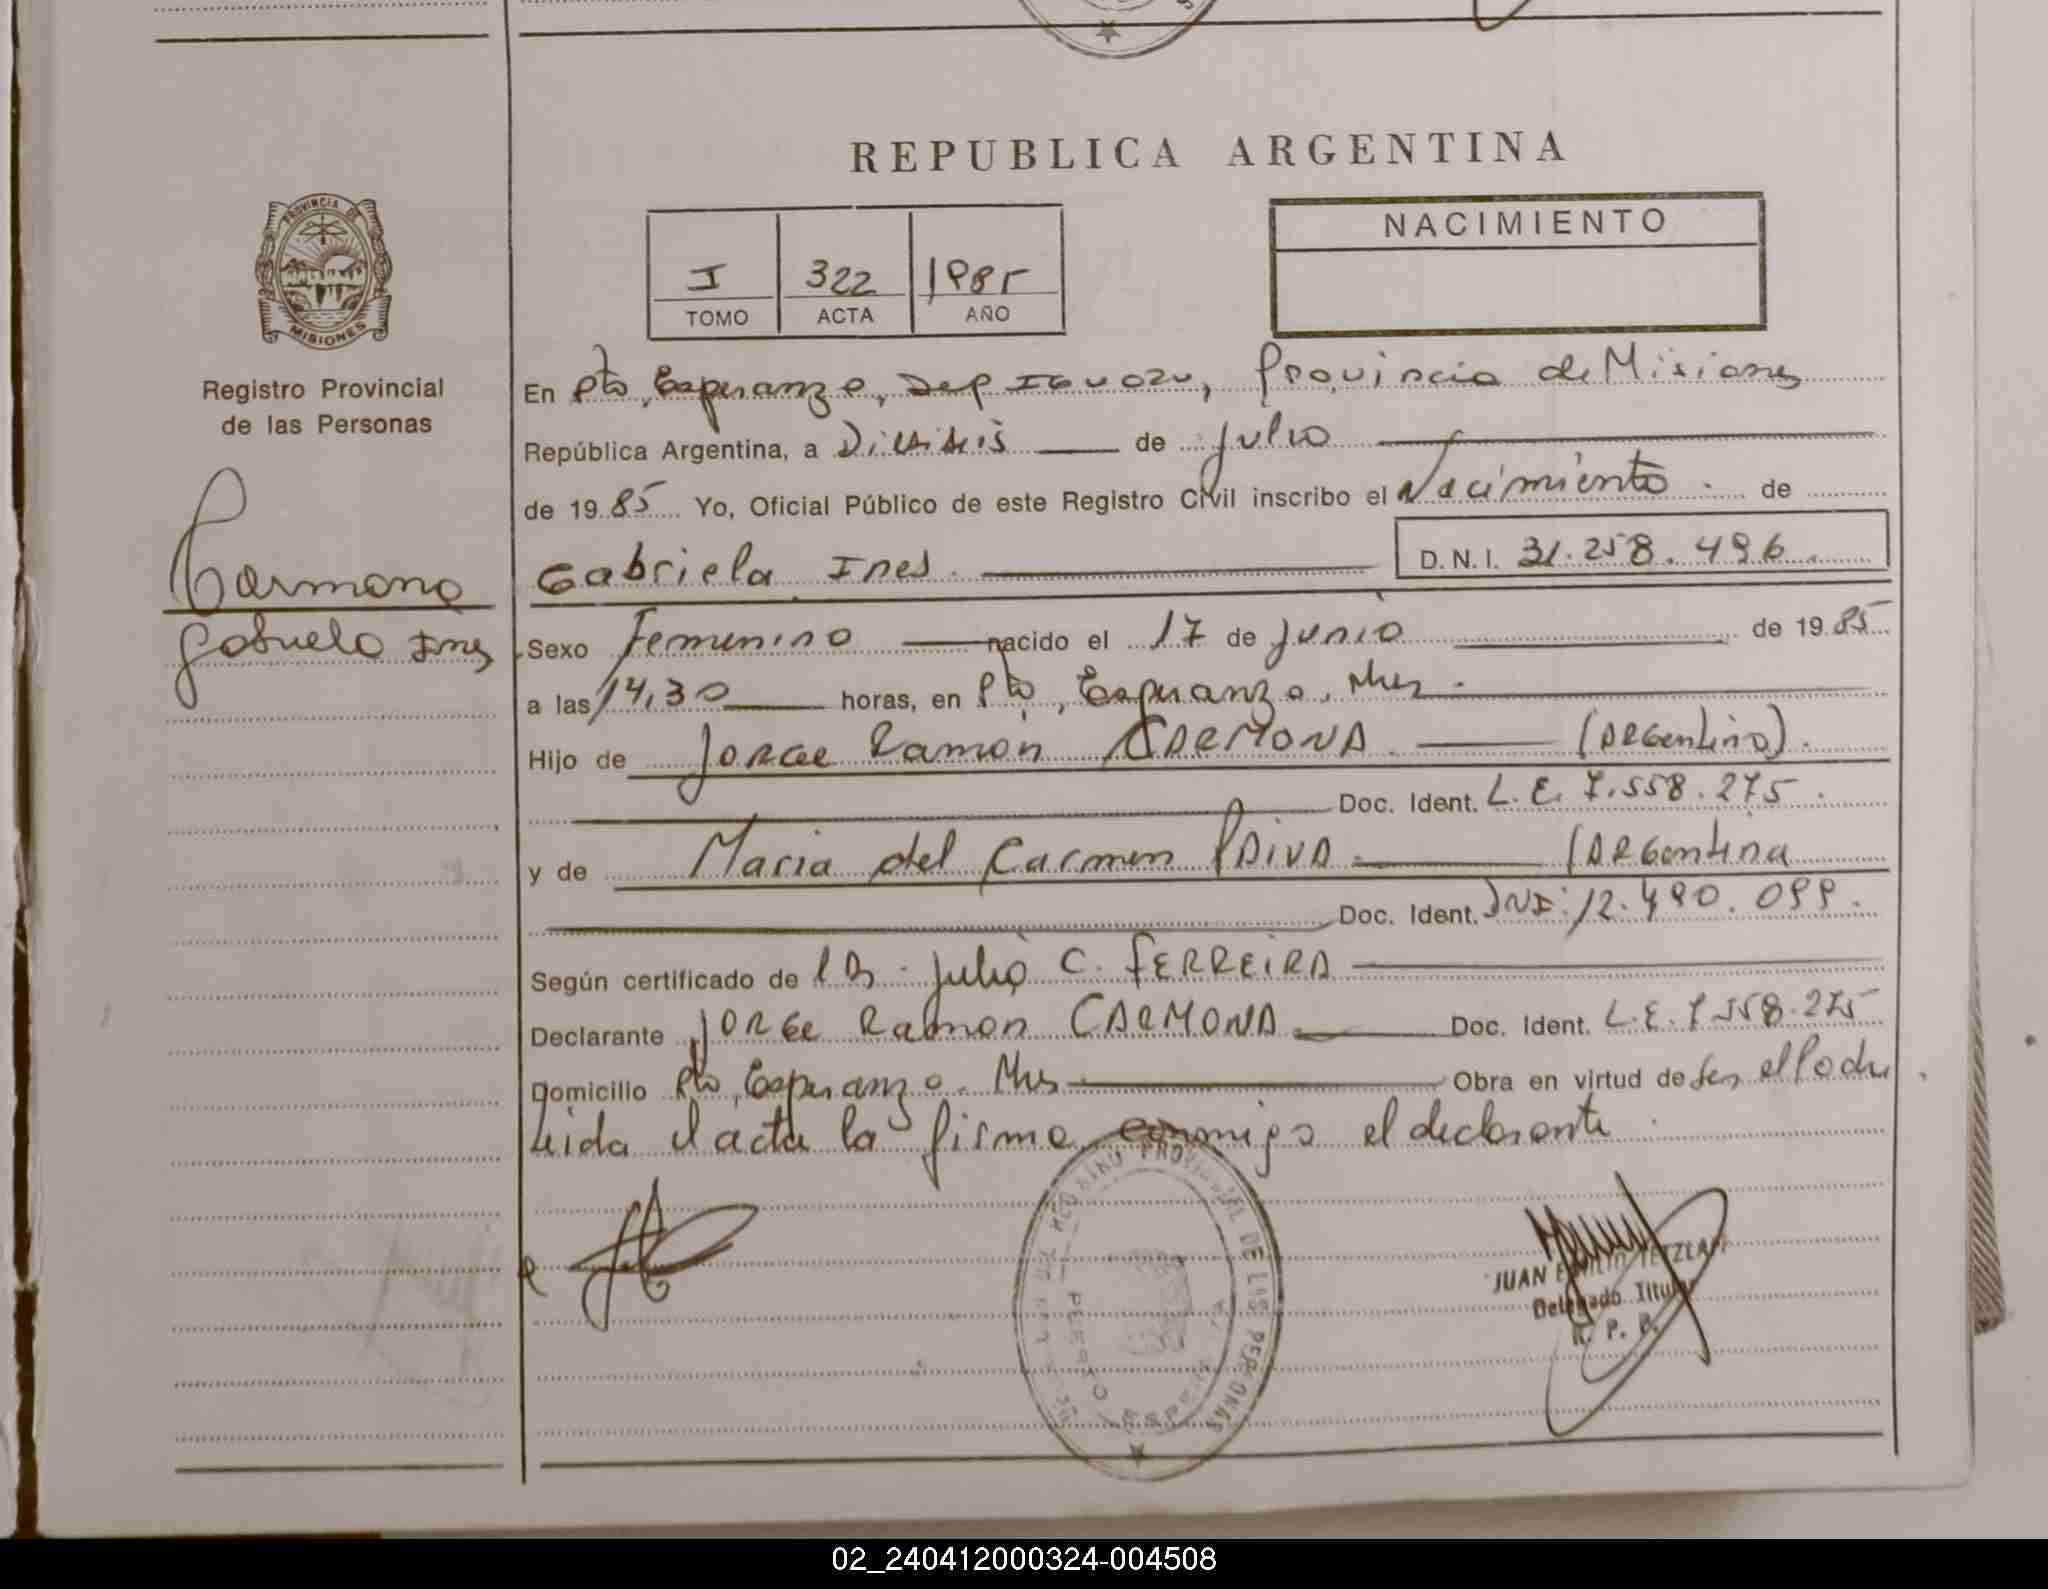 REPUBLICA ARGENTINA
PROVINCIA DE
MISIONES
Registro Provincial
de las Personas
Carmona
Gabriela Ines
I 322 1985
TOMO ACTA AÑO
NACIMIENTO
En Pto, Esperanza, Dep IGUAZU, Provincia de Misiones
República Argentina, a Dieciseis de julio
de 19 85 Yo, Oficial Público de este Registro Civil inscribo el Nacimiento de
Gabriela Ines. D.N.I. 31.258.496.
Sexo Femenino nacido el 17 de junio de 19 85
a las 14,30 horas, en Pto, Esperanza. Mnes.
Hijo de Jorge Ramon CARMONA (Argentino).
Doc. Ident. L.E. 7.558.275.
y de Maria del Carmen PAIVA. (Argentina
Doc. Ident. DNI: 12.490.099.
Según certificado de Julio C. FERREIRA
Declarante Jorge Ramon CARMONA Doc. Ident. L.E. 7.558.275
Domicilio Pto, Esperanza. Mnes Obra en virtud de ser el Padre
Leida el acta la firma conmigo el declarante.
REGISTRO PROVINCIAL DE LAS PERSONAS
PUERTO ESPERANZA
JUAN EMILIO TETZLAFF
Delegado Titular
R. P. P.
02_240412000324-004508